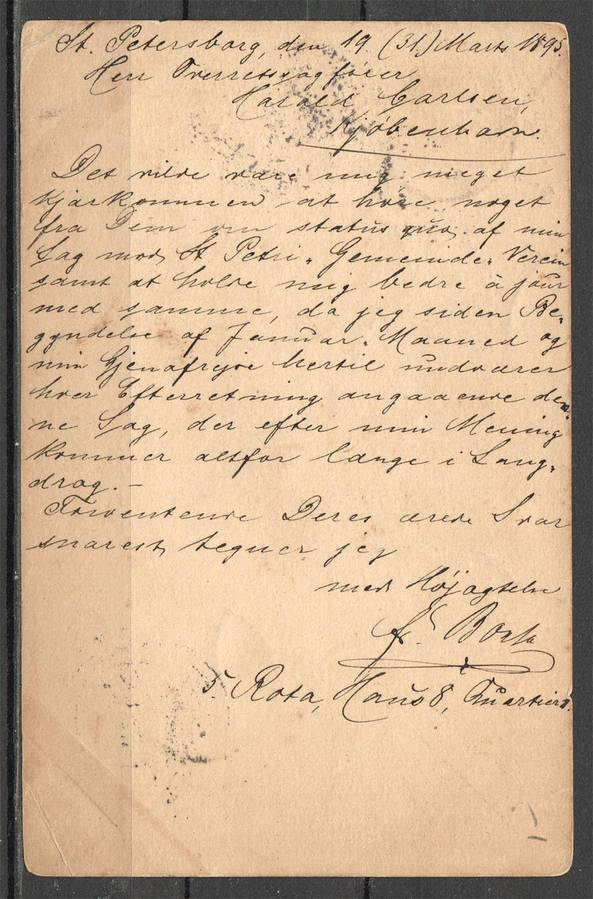 St. Petersborg, den 19. (31.) Marts 1895.
Herr Overretssagfører
Harald Carlsen,
Kjøbenhavn.
Det vilde være mig meget
kjærkommen at høre noget
fra Dem om status quo af min
Sag mod St. Petri-Gemeinde-Verein
samt at holde mig bedre à jour
med samme, da jeg siden Be-
gyndelse af Januar-Maaned og
min Gjenafrejse hertil undværer
hver Efterretning angaaende den-
ne Sag, der efter min Mening
kommer altfor længe i Lang-
drag. —
Forventende Deres ærede Svar
snarest, tegner jeg
med Højagtelse
5. Rota, Haus 8, Quartier